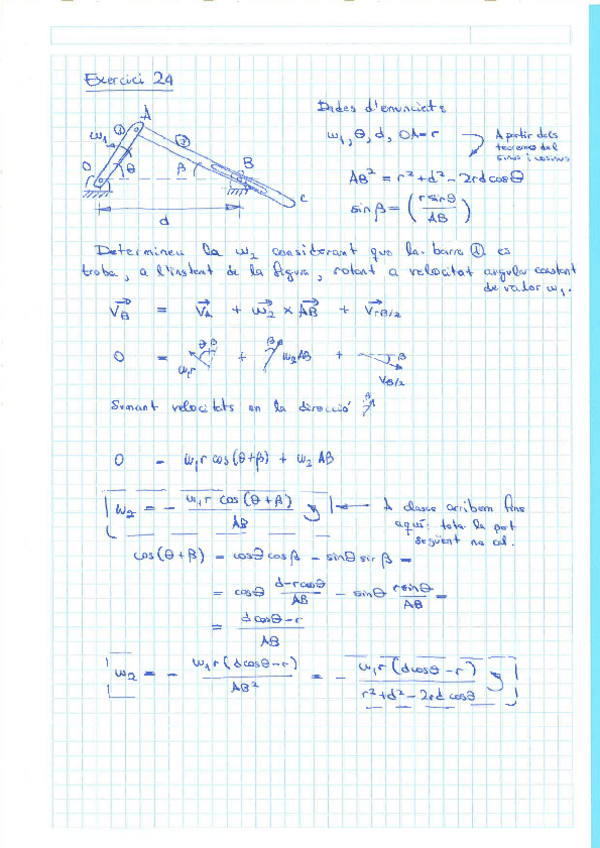 Exercici 24
Dades d'enunciat:
ω₁, θ, d, OA=r
A partir dels
teorema del
sinus i cosinus
AB² = r²+d²-2rd cosθ
sin β = (r sinθ / AB)
A
ω₁
①
②
O
θ
β
B
C
d
Determineu la ω₂ considerant que la barra ① es
troba, a l'instant de la figura, rotant a velocitat angular constant
de valor ω₁.
V_B = V_A + ω₂ × AB + V_rB/2
0 = ω₁r θ β + β ω₂AB + β V_B/2
Sumant velocitats en la direcció β
0 = ω₁r cos(θ+β) + ω₂ AB
ω₂ = - ω₁r cos(θ+β) / AB
A classe arribem fins
aquí: tota la part
següent no cal.
cos(θ+β) = cosθ cosβ - sinθ sin β =
= cosθ d-r cosθ / AB - sinθ r sinθ / AB =
= d cosθ - r / AB
ω₂ = - ω₁r (d cosθ - r) / AB² = - ω₁r (d cosθ - r) / r²+d²-2rd cosθ